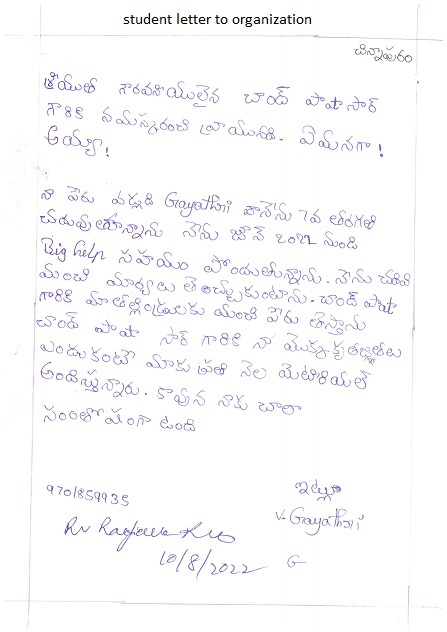 student letter to organization
చిన్నాపురం
శ్రీయుత గౌరవనీయులైన చాంద్ పాషా సార్
గారికి నమస్కరించి వ్రాయునది. ఏమనగా!
అయ్యా!
నా పేరు వడ్లడి Gayathri నేను 7వ తరగతి
చదువుతున్నాను నేను జూన్ 2022 నుండి
Big help సహాయం పొందుతున్నాను. నేను చదివి
మంచి మార్కులు తెచ్చుకుంటాను. చాంద్ పాషా
గారికి మా తల్లిదండ్రులకు మంచి పేరు తెస్తాను
చాంద్ పాషా సార్ గారికి నా కృతజ్ఞతలు
ఎందుకంటే మాకు ప్రతి నెల మెటీరియల్
అందిస్తున్నారు. కావున నాకు చాలా
సంతోషంగా ఉంది
ఇట్లు
9701859935
V. Gayathri
10/8/2022 G